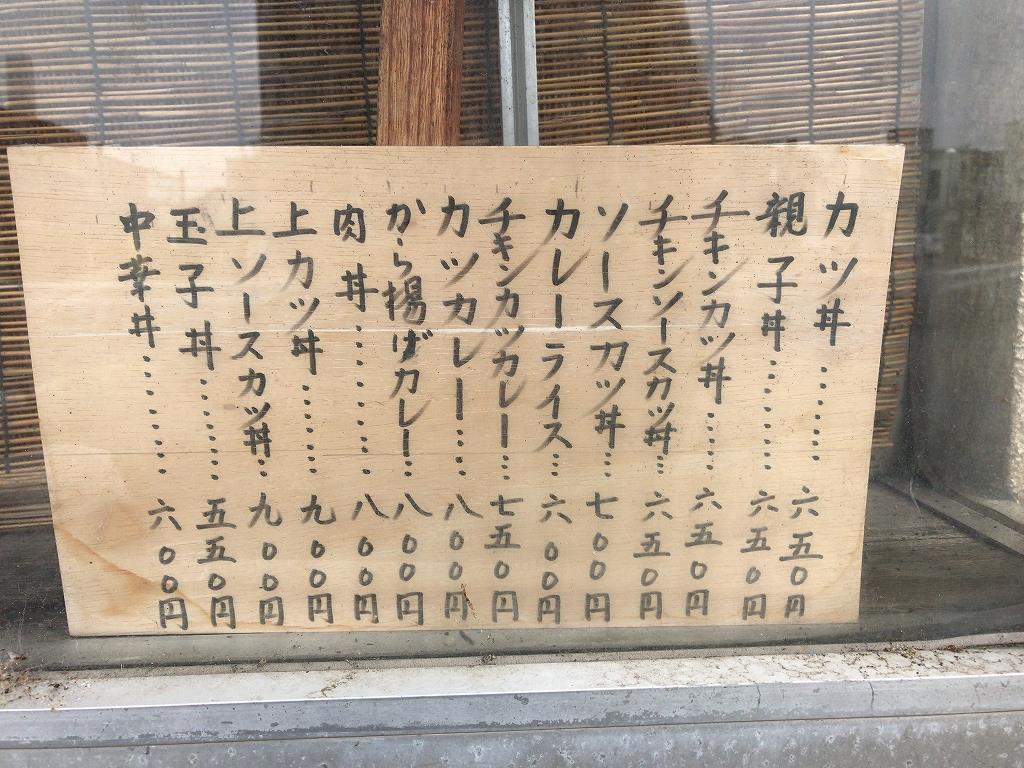 カツ丼………六五〇円
親子丼………六五〇円
チキンカツ丼……六五〇円
チキンソースカツ丼…六五〇円
ソースカツ丼…七〇〇円
カレーライス…六〇〇円
チキンカツカレー…七五〇円
カツカレー……八〇〇円
から揚げカレー…八〇〇円
肉丼………八〇〇円
上カツ丼………九〇〇円
上ソースカツ丼…九〇〇円
玉子丼………五五〇円
中幸丼………六〇〇円